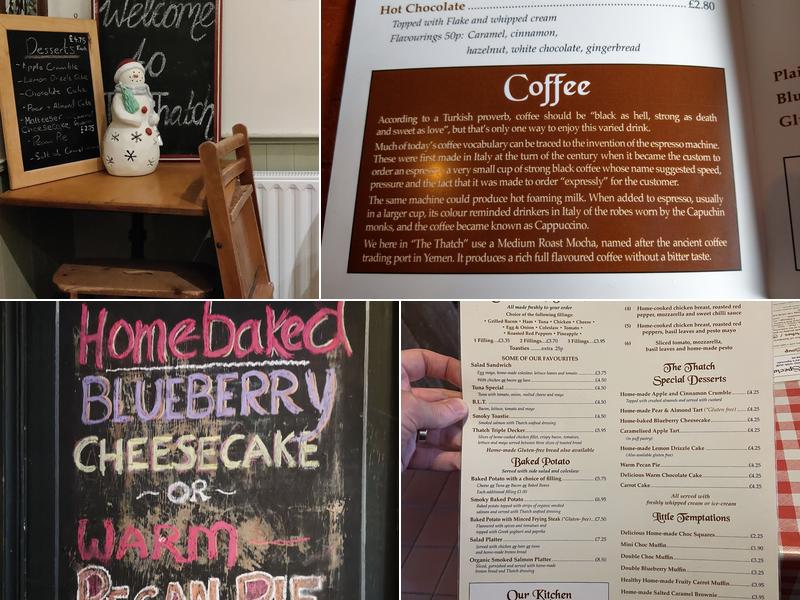 £4.75
Each
Desserts
- Apple Crumble
- Lemon Drizzle Cake
- Chocolate Cake
- Pear + Almond Cake
- Malteeser
Cheesecake
£2.75
- Pecan Pie
- Salted Caramel
Welcome
to
Thatch
Hot Chocolate £2.80
Topped with Flake and whipped cream
Flavourings 50p: Caramel, cinnamon,
hazelnut, white chocolate, gingerbread
Coffee
According to a Turkish proverb, coffee should be "black as hell, strong as death
and sweet as love", but that's only one way to enjoy this varied drink.
Much of today's coffee vocabulary can be traced to the invention of the espresso machine.
These were first made in Italy at the turn of the century when it became the custom to
order an espresso, a very small cup of strong black coffee whose name suggested speed,
pressure and the fact that it was made to order "expressly" for the customer.
The same machine could produce hot foaming milk. When added to espresso, usually
in a larger cup, its colour reminded drinkers in Italy of the robes worn by the Capuchin
monks, and the coffee became known as Cappuccino.
We here in "The Thatch" use a Medium Roast Mocha, named after the ancient coffee
trading port in Yemen. It produces a rich full flavoured coffee without a bitter taste.
Homebaked
BLUEBERRY
CHEESECAKE
~ OR ~
WARM
PECAN PIE
All made freshly to your order
Choice of the following fillings:
• Grilled Bacon • Ham • Tuna • Chicken • Cheese •
• Egg & Onion • Coleslaw • Tomato •
• Roasted Red Peppers • Pineapple •
1 Filling...£3.35 2 Fillings...£3.70 3 Fillings...£3.95
Toasties ..........extra 25p
SOME OF OUR FAVOURITES
Salad Sandwich
Egg mayo, home-made coleslaw, lettuce leaves and tomato £3.75
With chicken or bacon or ham £4.50
Tuna Special £4.50
Tuna with tomato, onion, melted cheese and mayo
B.L.T. £4.50
Bacon, lettuce, tomato and mayo
Smoky Toastie £4.50
Smoked salmon with Thatch seafood dressing
Thatch Triple Decker £5.95
Slices of home-cooked chicken fillet, crispy bacon, tomatoes,
lettuce and mayo served between three slices of toasted bread
Home-made Gluten-free bread also available
Baked Potato
Served with side salad and coleslaw
Baked Potato with a choice of filling £5.75
Cheese or Tuna or Bacon or Baked Beans
Each additional filling £1.00
Smoky Baked Potato £6.95
Baked potato topped with strips of organic smoked
salmon and served with Thatch seafood dressing
Baked Potato with Minced Frying Steak (*Gluten-free) £7.50
Flavoured with spices and tomatoes and
topped with Greek yoghurt and paprika
Salad Platter £7.25
Served with chicken or ham or tuna
and home-made brown bread
Organic Smoked Salmon Platter £8.50
Sliced, garnished and served with home-made
brown bread and Thatch dressing
Our Kitchen
(4) Home-cooked chicken breast, roasted red
pepper, mozzarella and sweet chilli sauce
(5) Home-cooked chicken breast, roasted red
peppers, basil leaves and pesto mayo
(6) Sliced tomato, mozzarella,
basil leaves and home-made pesto
The Thatch
Special Desserts
Home-made Apple and Cinnamon Crumble £4.25
Topped with crushed almonds and served with custard
Home-made Pear & Almond Tart (*Gluten free) £4.25
Home-baked Blueberry Cheesecake £4.25
Caramelised Apple Tart £4.25
(in puff pastry)
Home-made Lemon Drizzle Cake £4.25
(Also available gluten free)
Warm Pecan Pie £4.25
Delicious Warm Chocolate Cake £4.25
Carrot Cake £4.25
All served with
freshly whipped cream or ice-cream
Little Temptations
Delicious Home-made Choc Squares £2.25
Mini Choc Muffin £1.90
Double Choc Muffin £3.25
Double Blueberry Muffin £3.25
Healthy Home-made Fruity Carrot Muffin £3.95
Home-made Salted Caramel Brownie £3.95
Plai
Blu
Gl